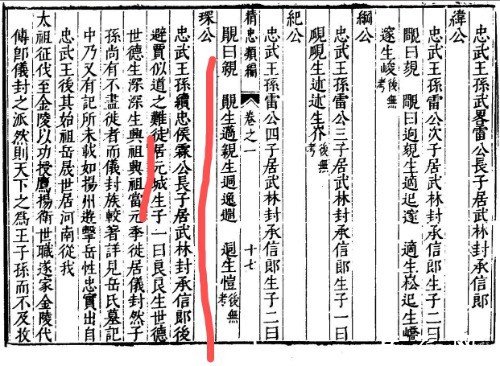 忠武王孫武畧雷公長子居武林封承信郎
緯公
忠武王孫雷公次子居武林封承信郎生子二曰
曰親生迥親生适迟 适生崧迟生嶠
生峻後無考
綱公
忠武王孫雷公三子居武林封承信郎生子一曰
生述述生界後無考
紀公
忠武王孫雷公四子居武林封承信郎生子二曰
精忠類編 卷之一 十七
曰親 生邁親生 迴生愷後無考
琛公
忠武王孫續忠侯霖公長子居武林封承信郎後
避賈似道之難徙居元城生子一曰艮艮生世德
世德生深深生興祖興祖當元季徙居儀封然子
孫尚有不盡徙者而儀封族較著詳見岳氏墓記
中乃又有記所未載如揚州遊擊岳性忠實出自
忠武王後其始祖岳展世居河南從我
太祖征伐至金陵以功授鷹揚衛世職遂家金陵代
傳即儀封之派然則天下之為王子孫而不及攷